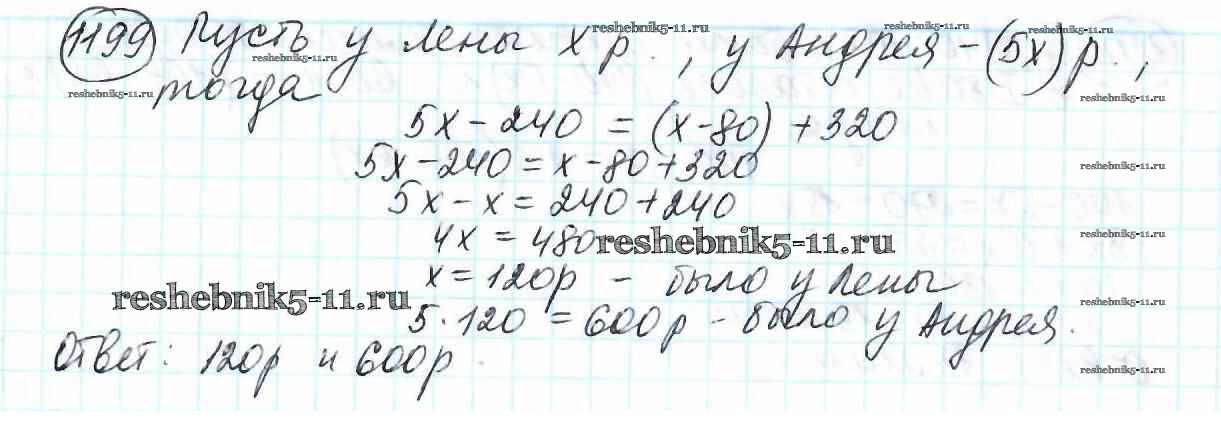 reshebnik5-11.ru reshebnik5-11.ru
1199 Пусть у Лены x р., у Андрея – (5x) р.,
reshebnik5-11.ru reshebnik5-11.ru
reshebnik5-11.ru тогда reshebnik5-11.ru
5x – 240 = (x-80) + 320
5x – 240 = x – 80 + 320 reshebnik5-11.ru
5x – x = 240 + 240
4x = 480 reshebnik5-11.ru reshebnik5-11.ru
x = 120р – было у Лены
reshebnik5-11.ru reshebnik5-11.ru
5 · 120 = 600р – было у Андрея.
Ответ: 120р и 600р.
reshebnik5-11.ru